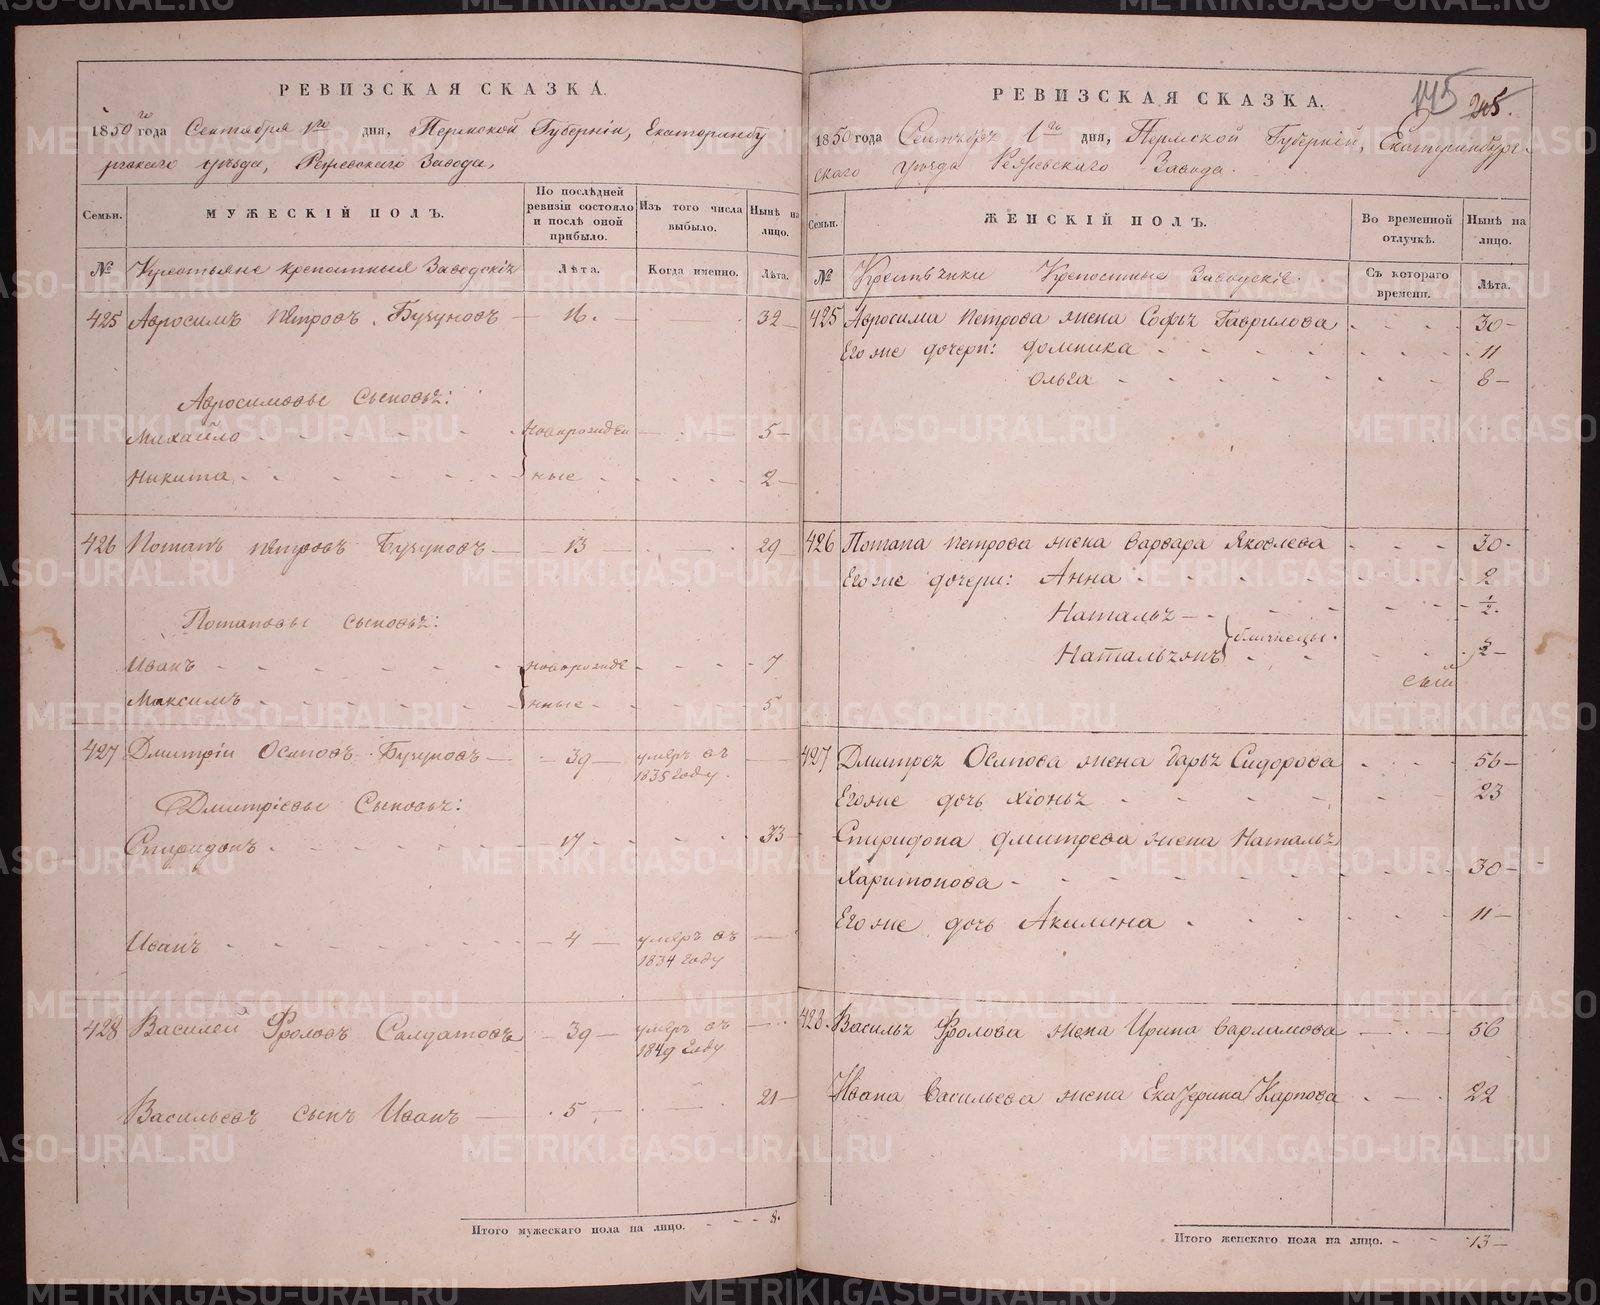 РЕВИЗСКАЯ СКАЗКА.
1850го года Сентября 1го дня, Пермской Губернiи, Екатеринбу
ргскаго уѣзда, Режевскаго Завода,
Семьи.
МУЖЕСКIЙ ПОЛЪ.
По послѣдней ревизiи состояло и послѣ оной прибыло.
Изъ того числа выбыло.
Нынѣ на лицо.
№
Крестьяне крепостныя Заводскiя
Лѣта.
Когда именно.
Лѣта.
425 Авросимъ Петровъ Бучуновъ 16. 32
Авросимовы Сыновья:
Михайло новорожден 5
Никита ные 2
426 Потапъ Петровъ Бучуновъ 13 29
Потаповы Сыновья:
Иванъ новорожде 7
Максимъ нные 5
427 Дмитрiй Осиповъ Бучуновъ 39 умеръ въ
1835 году.
Дмитрiевы Сыновья:
Спиридонъ 17 33
Иванъ 4 умеръ въ
1834 году
428 Василей Фроловъ Салдатовъ 39 умеръ въ
1849 году
Васильевъ сынъ Иванъ 5 21
Итого мужескаго пола на лицо. 8.
РЕВИЗСКАЯ СКАЗКА.
205.
1850 года Сентября 1го дня, Пермской Губернiи, Екатеринбург-
скаго уѣзда Режевскаго Завода.
Семьи.
ЖЕНСКIЙ ПОЛЪ.
Во временной отлучкѣ.
Нынѣ на лицо.
№
Крепостные Заводскiе.
Съ котораго времени.
Лѣта.
425 Авросима Петрова жена Софья Гаврилова 30
Егоже дочери: Домника 11
Ольга 8
426 Потапа Петрова жена Варвара Яковлева 30
Егоже дочери: Анна 2
Наталья 1/2.
близнецы.
427 Дмитрея Осипова жена Дарья Сидорова 56
Егоже дочь Хiонья 23
Спиридона Дмитрева жена Наталья
Харитонова 30
Егоже дочь Акилина 11
428. Василья Фролова жена Ирина Варламова 56
Ивана Васильева жена Екатерина Карпова 22
Итого женскаго пола на лицо. 13
METRIKI.GASO-URAL.RU